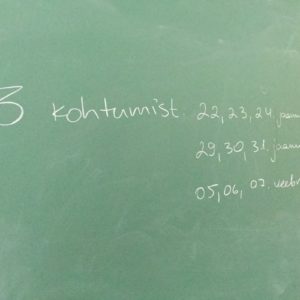 3 kohtumist. 22, 23, 24. jaanu
29, 30, 31. jaanu
05, 06, 07. veebr